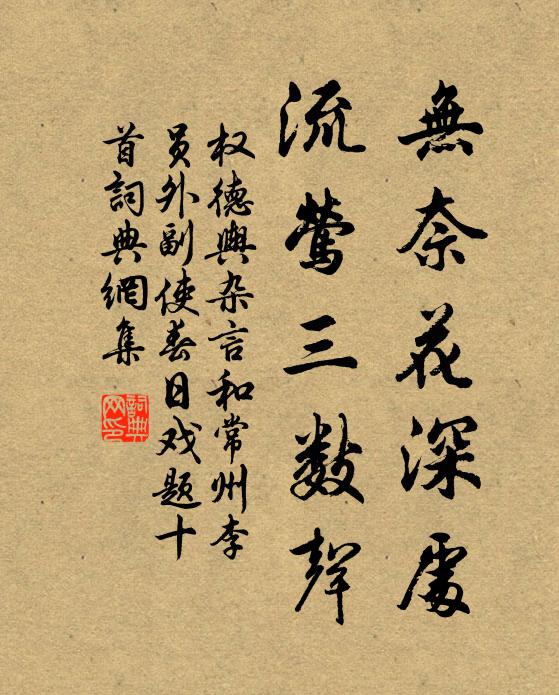 無奈花深處
流莺三數聲
权德輿杂言和常州李
員外副使春日戏题十
首詞典網集
詞典
网印